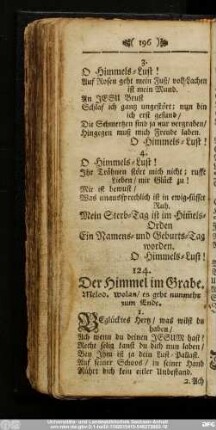 196
3.
O Himmels-Lust!
Auf Rosen geht mein Fuß/ voll Lachen
ist mein Mund.
An JESU Brust
Schlaf ich gantz ungestört; nun bin
ich erst gesund/
Die Schmertzen sind ja nur vergraben/
Hingegen muß mich Freude laben.
O Himmels-Lust!
4.
O Himmels-Lust!
Ihr Thränen stört mich nicht; rufft
Lieben/ mir Glück zu!
Mir ist bewust/
Was unaussprechlich ist in ewig-süsser
Ruh.
Mein Sterb-Tag ist im Him̃els-
Orden
Ein Namens- und Geburts-Tag
worden.
O Himmels-Lust!
124.
Der Himmel im Grabe.
Melod. Wolan/ es geht nunmehr
zum Ende.
1.
Beglücktes Hertz/ was wilst du
haben/
Ach wenn du deinen JESUM hast/
Recht selig kanst du dich nun laben/
Bey Ihm ist ja dein Lust-Pallast.
Auf seiner Schooß/ in seiner Hand
Rühret dich kein eitler Unbestand.
2. Ach